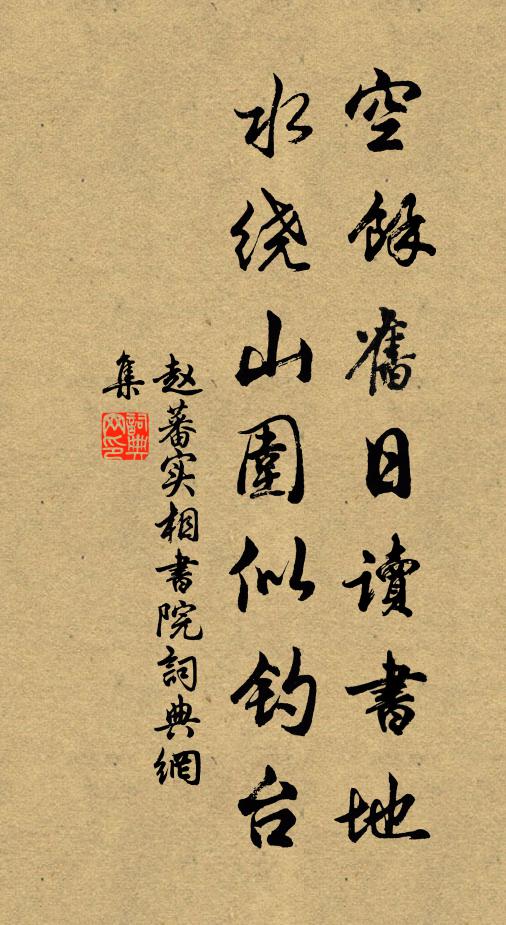 空餘舊日讀書地
水绕山圍似钓台
赵蕃实相書院詞典網
集
詞典
网印